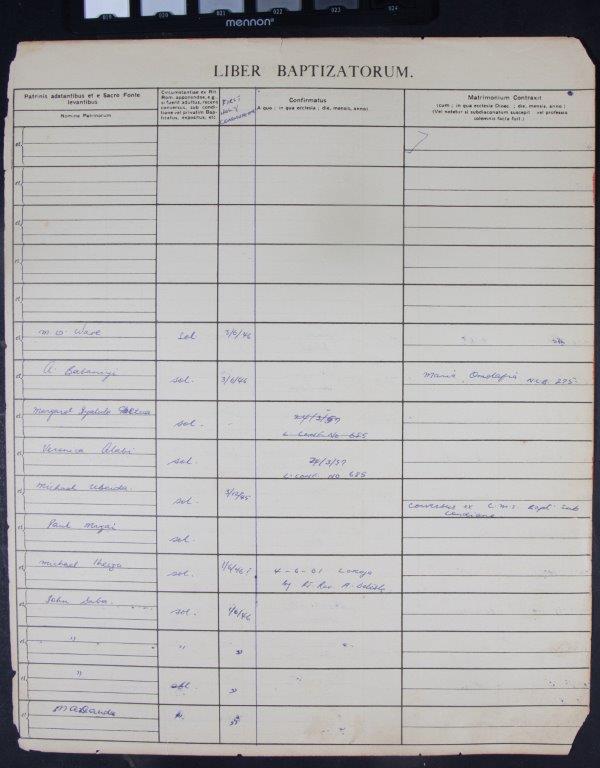 019 020 021 022 023 024
mennon
LIBER BAPTIZATORUM.
Patrinis adstantibus et e Sacro Fonte
levantibus
Nomina Patrinorum
Circumstantiae ex Rit.
Rom. apponendae, e.g.,
si fuerit adultus, recens
conversus, sub condi-
tione vel privatim Bap-
tizatus, expositus, etc.
FIRST
HOLY
COMMUNION
Confirmatus
(A quo ; in qua ecclesia ; die, mensis, anno)
Matrimonium Contraxit
(cum ; in qua ecclesia Dioec. ; die, mensis, anno)
(Vel notetur si subdiaconatum suscepit vel professio
solemnis facta fuit.)
M. O. Ware sol 3/6/46
A sol. 3/6/46 Maria NCB. 275
Margaret sol. - 24/3/57
L. CONF. NO 685
Veronica Alabi sol. 24/3/57
L. CONF. NO 685
Michael sol. 3/12/45
Conversus ex C.M.S. Bapt. sub
Condicione
Paul sol.
Michael sol. 1/6/46 4-6-61 Lokoja
by Rt. Rev. A. Delisle
John sol. 1/6/46
" " "
" sol. "